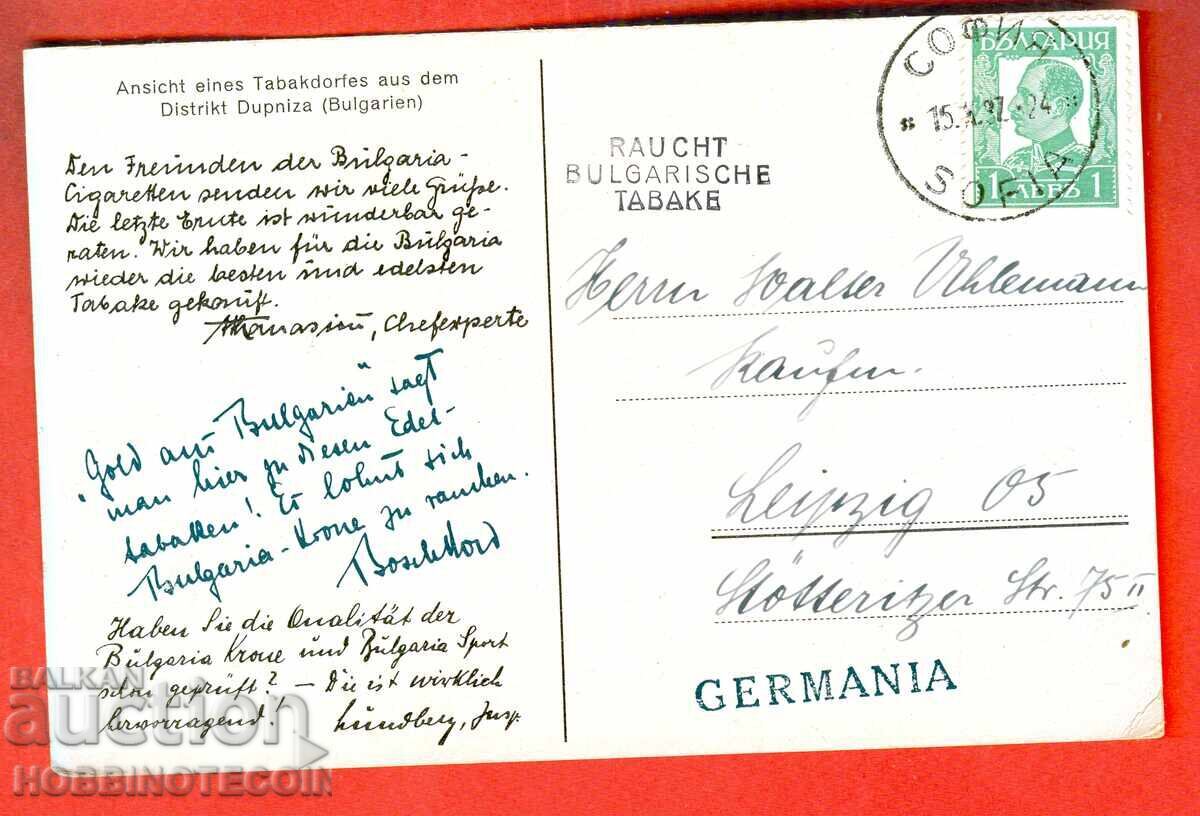 Ansicht eines Tabakdorfes aus dem
Distrikt Dupniza (Bulgarien)
Den Freunden der Bulgaria-
Cigaretten senden wir viele Grüße.
Die letzte Ernte ist wunderbar ge-
raten. Wir haben für die Bulgaria
wieder die besten und edelsten
Tabake gekauft.
Athanasiou, Chefexperte
"Gold aus Bulgarien" sagt
man hier zu diesen Edel-
tabakken! Es lohnt sich
Bulgaria-Krone zu rauchen.
Haben Sie die Qualität der
Bulgaria Krone und Bulgaria Sport
schon geprüft? - Die ist wirklich
hervorragend! Lundberg, Insp.
RAUCHT
BULGARISCHE
TABAKE
СОФИЯ
SOFIA
БЪЛГАРИЯ
1 ЛЕВЪ 1
Herrn Walter Uhlemann
Kaufm.
Leipzig O5
Stötteritzer Str. 75 II
GERMANIA
BALKAN
auction
HOBBINOTECOIN